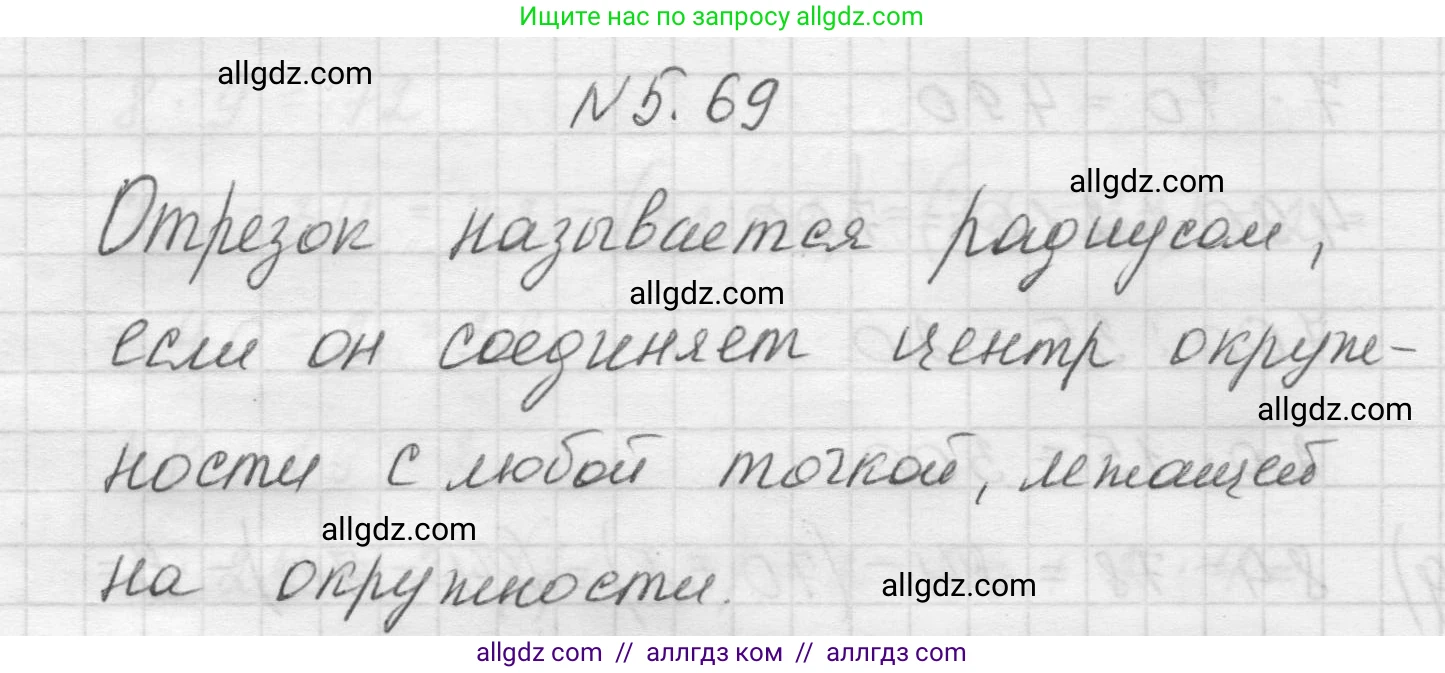 Ищите нас по запросу allgdz.com
allgdz.com
№ 5. 69
allgdz.com
Отрезок называется радиусом,
allgdz.com
если он соединяет центр окруж-
allgdz.com
ности с любой точкой, лежащей
allgdz.com
на окружности.
allgdz.com
allgdz com // аллгдз ком // аллгдз com